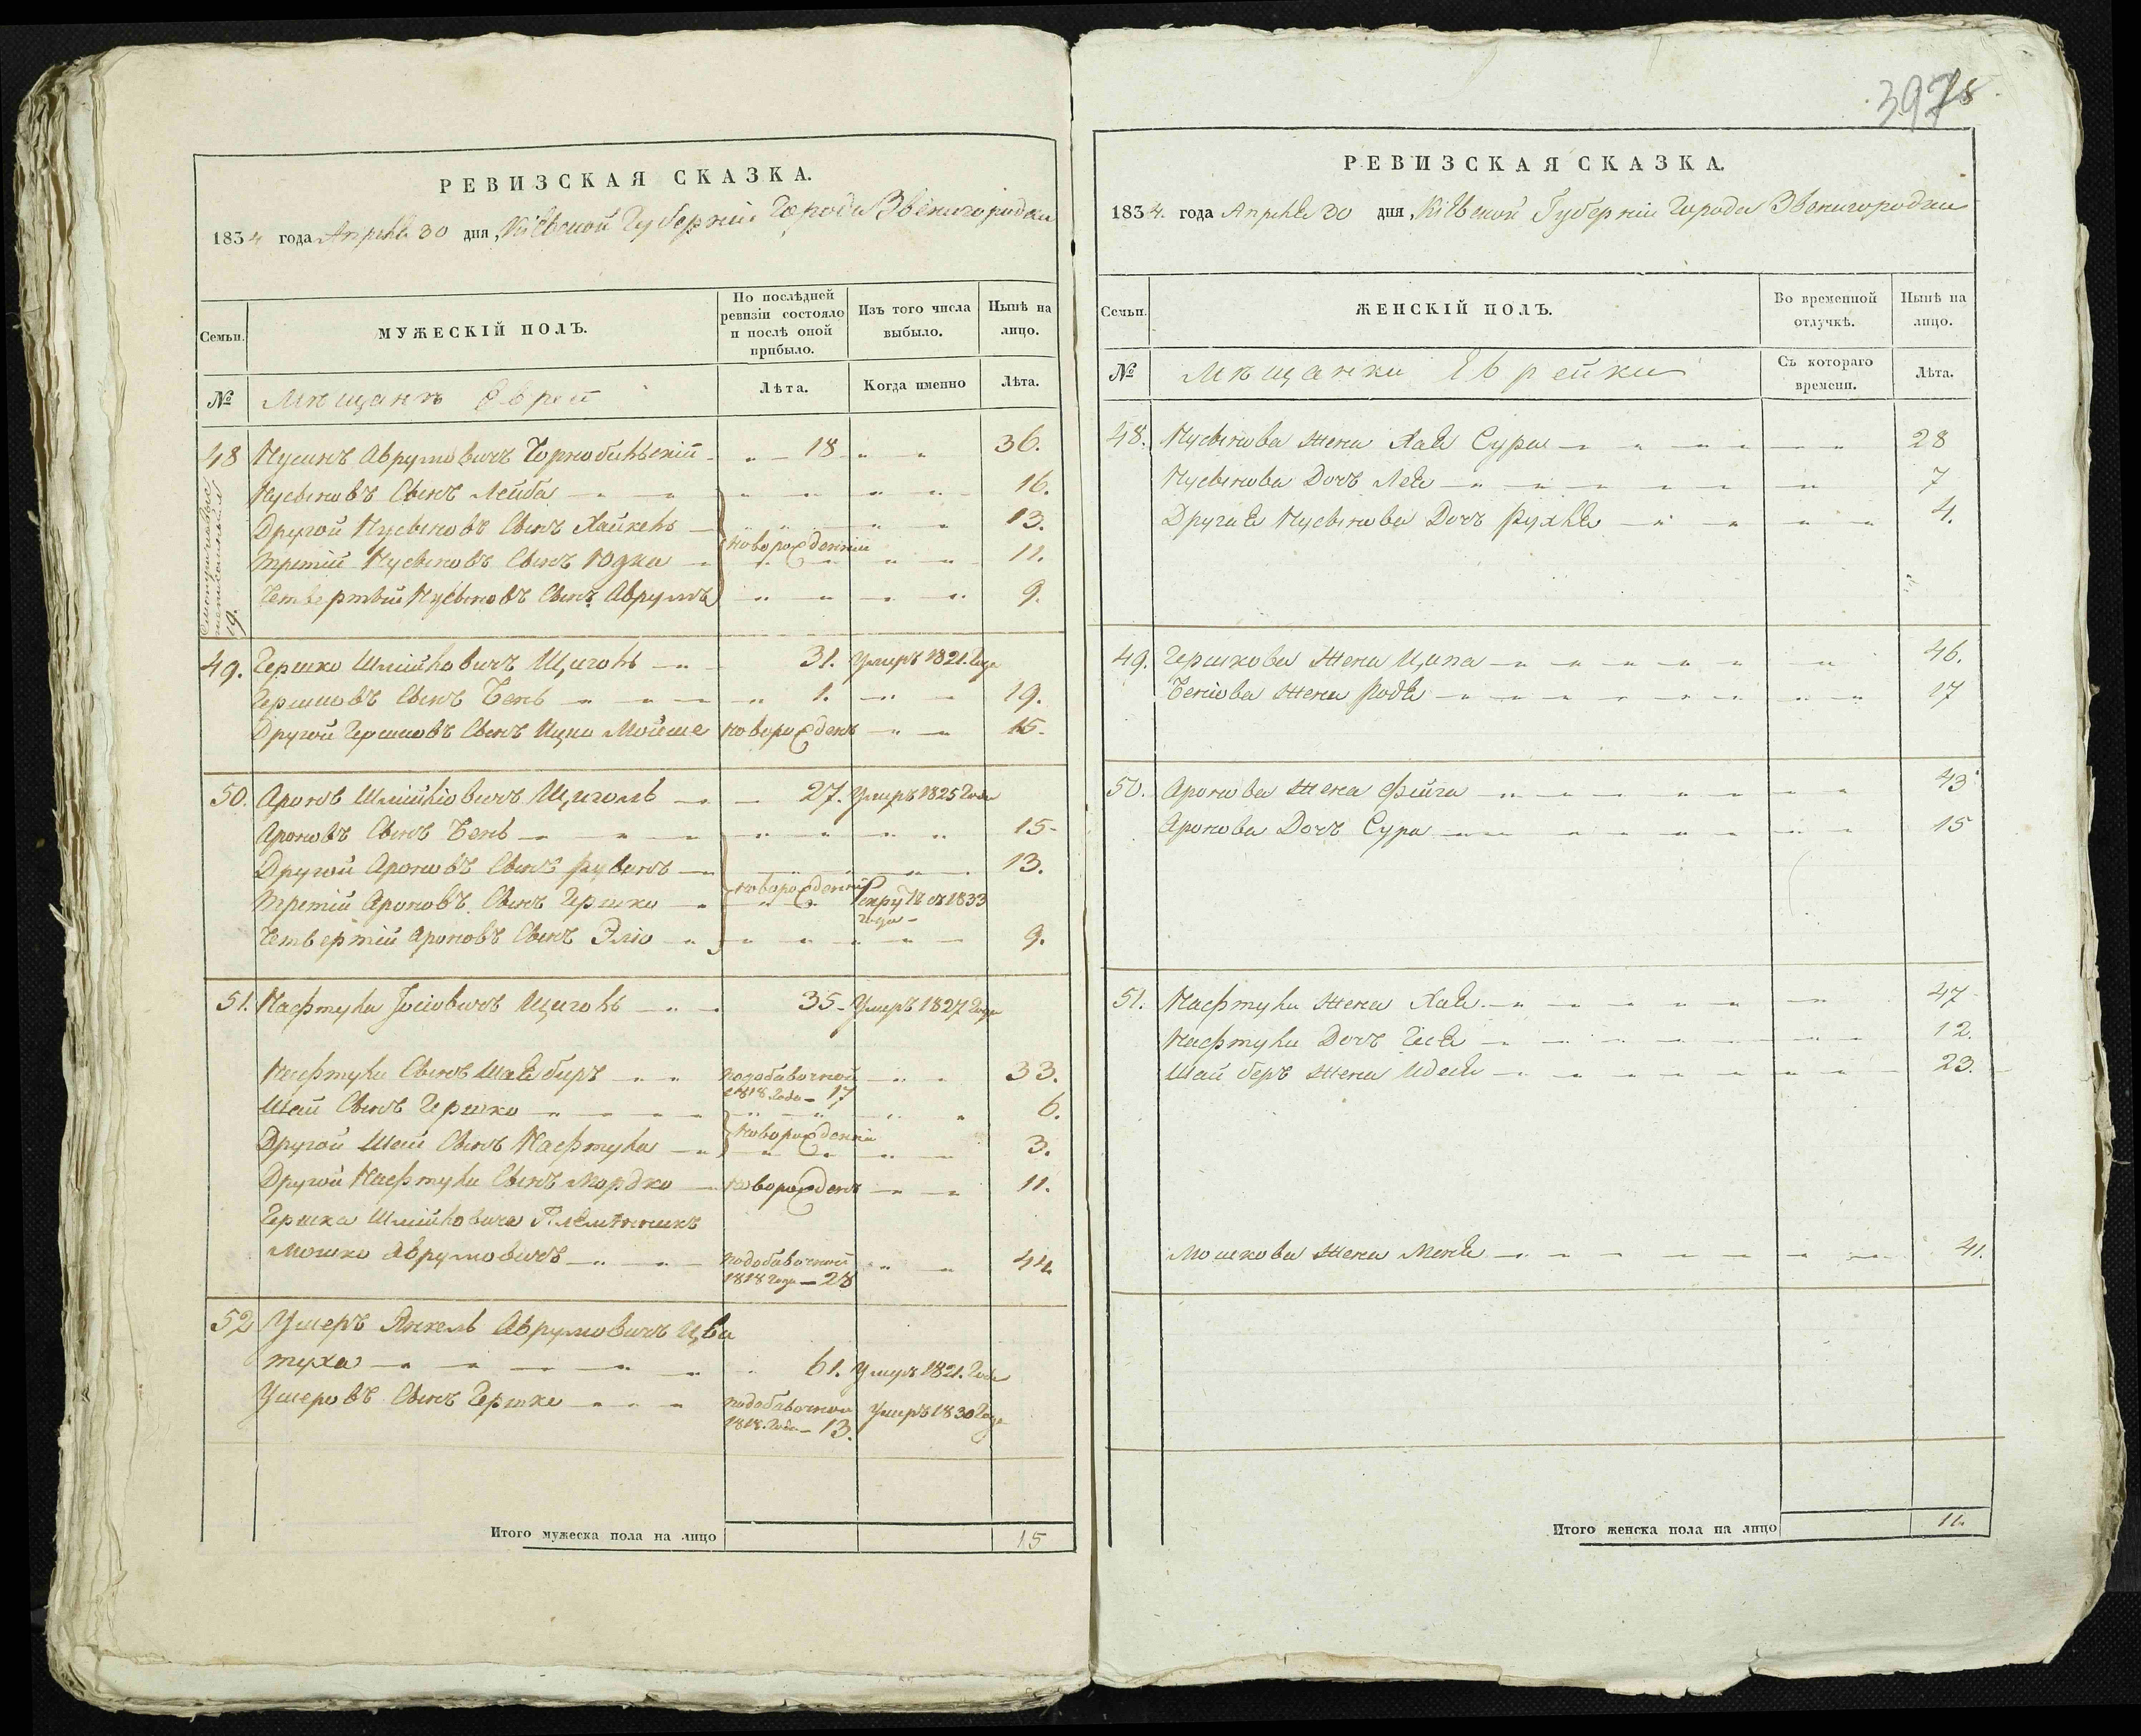 3978
РЕВИЗСКАЯ СКАЗКА.
1834 года Апреля 30 дня, Кіевской Губерніи Города Звенигородки
Семьи.
МУЖЕСКІЙ ПОЛЪ.
По послѣдней ревизіи состояло и послѣ оной прибыло.
Изъ того числа выбыло.
Нынѣ на лицо.
№
Мѣщанъ Еврей
Лѣта.
Когда именно
Лѣта.
48 Нусинъ Аврумовичъ Чорнобильскій 18 36.
Нусыновъ Сынъ Лейба 16.
Другой Нусыновъ Сынъ Хайкель 13.
Новорожденніи
третій Нусыновъ Сынъ Юдка 11.
Четвертый Нусыновъ Сынъ Аврумъ 9.
19.
49. Гершко Шлійновичъ Щиголь 31. Умеръ 1821. Года
Гершковъ Сынъ Бень 1. 19.
Другой Гершковъ Сынъ Ицко Мойше Новорожденъ 15.
50. Аронъ Шлійніовичъ Щиголь 27. Умеръ 1825 Года
Ароновъ Сынъ Бень 15
Другой Ароновъ Сынъ Рувинъ 13.
Новорожденніи
Третій Ароновъ Сынъ Гершко Рекрутъ съ 1833 года
Четвертій Ароновъ Сынъ Эліо 9.
51. Нафтула Іосіовичъ Щиголь 35 Умеръ 1827 Года
Нафтулы Сынъ Шаябиръ подобавочной 1818 Года 17 33.
Шаи Сынъ Гершко 6.
Новорожденніи
Другой Шаи Сынъ Нафтула 3.
Другой Нафтулы Сынъ Мордко Новорожденъ 11.
Гершка Шлійновича Племянникъ
Мошко Аврумовичъ подобавочной 1818 Года 28 44
52 Умеръ Янкель Аврумовичъ Цва
туха 61. Умеръ 1821. Года
Умеровъ Сынъ Гершко подобавочной 1818. Года 13. Умеръ 1830 Года
Итого мужеска пола на лицо 15
РЕВИЗСКАЯ СКАЗКА.
1834. года Апреля 30 дня, Кіевской Губерніи Города Звенигородки
Семьи.
ЖЕНСКІЙ ПОЛЪ.
Во временной отлучкѣ.
Нынѣ на лицо.
№
Мѣщанки Еврейки
Съ котораго времени.
Лѣта.
48. Нусынова Жена Хая Сура 28
Нусынова Дочъ Лея 7
Другая Нусынова Дочъ Рухля 4.
49. Гершкова Жена Ципа 46.
Беніова Жена Родя 17
50. Аронова Жена Фейга 43
Аронова Дочъ Сура 15
51. Нафтулы Жена Хая 47
Нафтулы Дочъ Гися 12.
Шаи беръ Жена Идеся 23.
Мошкова Жена Меня 41.
Итого женска пола на лицо 11.